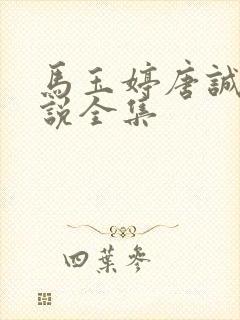 馬玉婷唐誠
說全集
四葉參